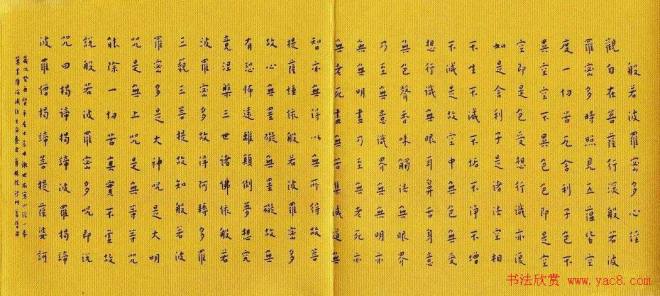 般若波羅蜜多心經
觀自在菩薩行深般若波
羅蜜多時照見五蘊皆空
度一切苦厄舍利子色不
異空空不異色色即是空
空即是色受想行識亦復
如是舍利子是諸法空相
不生不滅不垢不淨不增
不減是故空中無色無受
想行識無眼耳鼻舌身意
無色聲香味觸法無眼界
乃至無意識界無無明亦
無無明盡乃至無老死亦
無老死盡無苦集滅道無
智亦無得以無所得故菩
提薩埵依般若波羅蜜多
故心無罣礙無罣礙故無
有恐怖遠離顛倒夢想究
竟涅槃三世諸佛依般若
波羅蜜多故得阿耨多羅
三藐三菩提故知般若波
羅蜜多是大神咒是大明
咒是無上咒是無等等咒
能除一切苦真實不虛故
說般若波羅蜜多咒即說
咒曰揭諦揭諦波羅揭諦
波羅僧揭諦菩提薩婆訶
书法欣赏
www.yac8.com